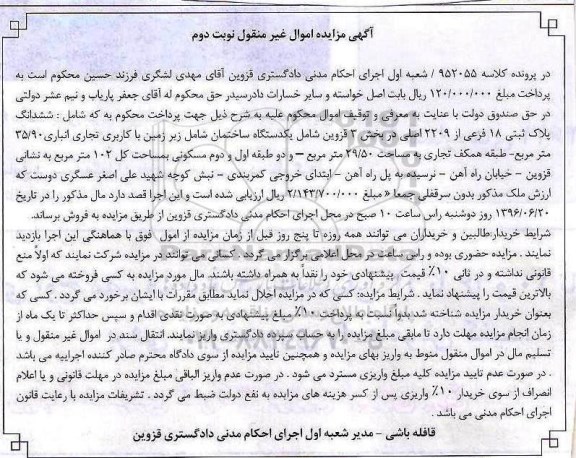 آگهی مزایده اموال غیر منقول نوبت دوم
در پرونده کلاسه ۹۵۲۰۵۵ / شعبه اول اجرای احکام مدنی دادگستری قزوین آقای مهدی لشگری فرزند حسین محکوم است به
پرداخت مبلغ ۱۲۰/۰۰۰/۰۰۰ ریال بابت اصل خواسته و سایر خسارات دادرسیدر حق محکوم له آقای جعفر پاریاب و نیم عشر دولتی
در حق صندوق دولت با عنایت به معرفی و توقیف اموال محکوم علیه به شرح ذیل جهت پرداخت محکوم به که شامل : ششدانگ
پلاک ثبتی ۱۸ فرعی از ۲۲۰۹ اصلی در بخش ۲ قزوین شامل یکدستگاه ساختمان شامل زیر زمین با کاربری تجاری انباری۳۵/۹۰
متر مربع- طبقه همکف تجاری به مساحت ۲۹/۵۰ متر مربع – و دو طبقه اول و دوم مسکونی بمساحت کل ۱۰۲ متر مربع به نشانی
قزوین – خیابان راه آهن – نرسیده به پل راه آهن – ابتدای خروجی کمربندی – نبش کوچه شهید علی اصغر عسگری دوست که
ارزش ملک مذکور بدون سرقفلی جمعا « مبلغ ۲/۱۴۳/۷۰۰/۰۰۰ ریال ارزیابی شده است و این اجرا قصد دارد مال مذکور را در تاریخ
۱۳۹۶/۰۶/۲۰ روز دوشنبه راس ساعت ۱۰ صبح در محل اجرای احکام مدنی دادگستری قزوین از طریق مزایده به فروش برساند.
شرایط خریدار:طالبین و خریداران می توانند همه روزه تا پنج روز قبل از زمان مزایده از امول فوق با هماهنگی این اجرا بازدید
نمایند . مزایده حضوری بوده و راس ساعت در محل اعلامی برگزار می گردد . کسانی می توانند در مزایده شرکت نمایند که اولاً منع
قانونی نداشته و در ثانی ۱۰٪ قیمت پیشنهادی خود را نقداً به همراه داشته باشند. مال مورد مزایده به کسی فروخته می شود که
بالاترین قیمت را پیشنهاد نماید . شرایط مزایده: کسی که در مزایده اخلال نماید مطابق مقررات با ایشان برخورد می گردد . کسی که
بعنوان خریدار مزایده شناخته شد بدواً نسبت به پرداخت ۱۰٪ مبلغ پیشنهادی به صورت نقدی اقدام و سپس حداکثر تا یک ماه از
زمان انجام مزایده مهلت دارد تا مابقی مبلغ مزایده را به حساب سپرده دادگستری واریز نمایند. انتقال سند در اموال غیر منقول و یا
تسلیم مال در اموال منقول منوط به واریز بهای مزایده و همچنین تایید مزایده از سوی دادگاه محترم صادر کننده اجراییه می باشد
. در صورت عدم تایید مزایده کلیه مبلغ واریزی مسترد می شود . در صورت عدم واریز الباقی مبلغ مزایده در مهلت قانونی و یا اعلام
انصراف از سوی خریدار ۱۰٪ واریزی پس از کسر هزینه های مزایده به نفع دولت ضبط می گردد . تشریفات مزایده با رعایت قانون
اجرای احکام مدنی می باشد .
قافله باشی – مدیر شعبه اول اجرای احکام مدنی دادگستری قزوین